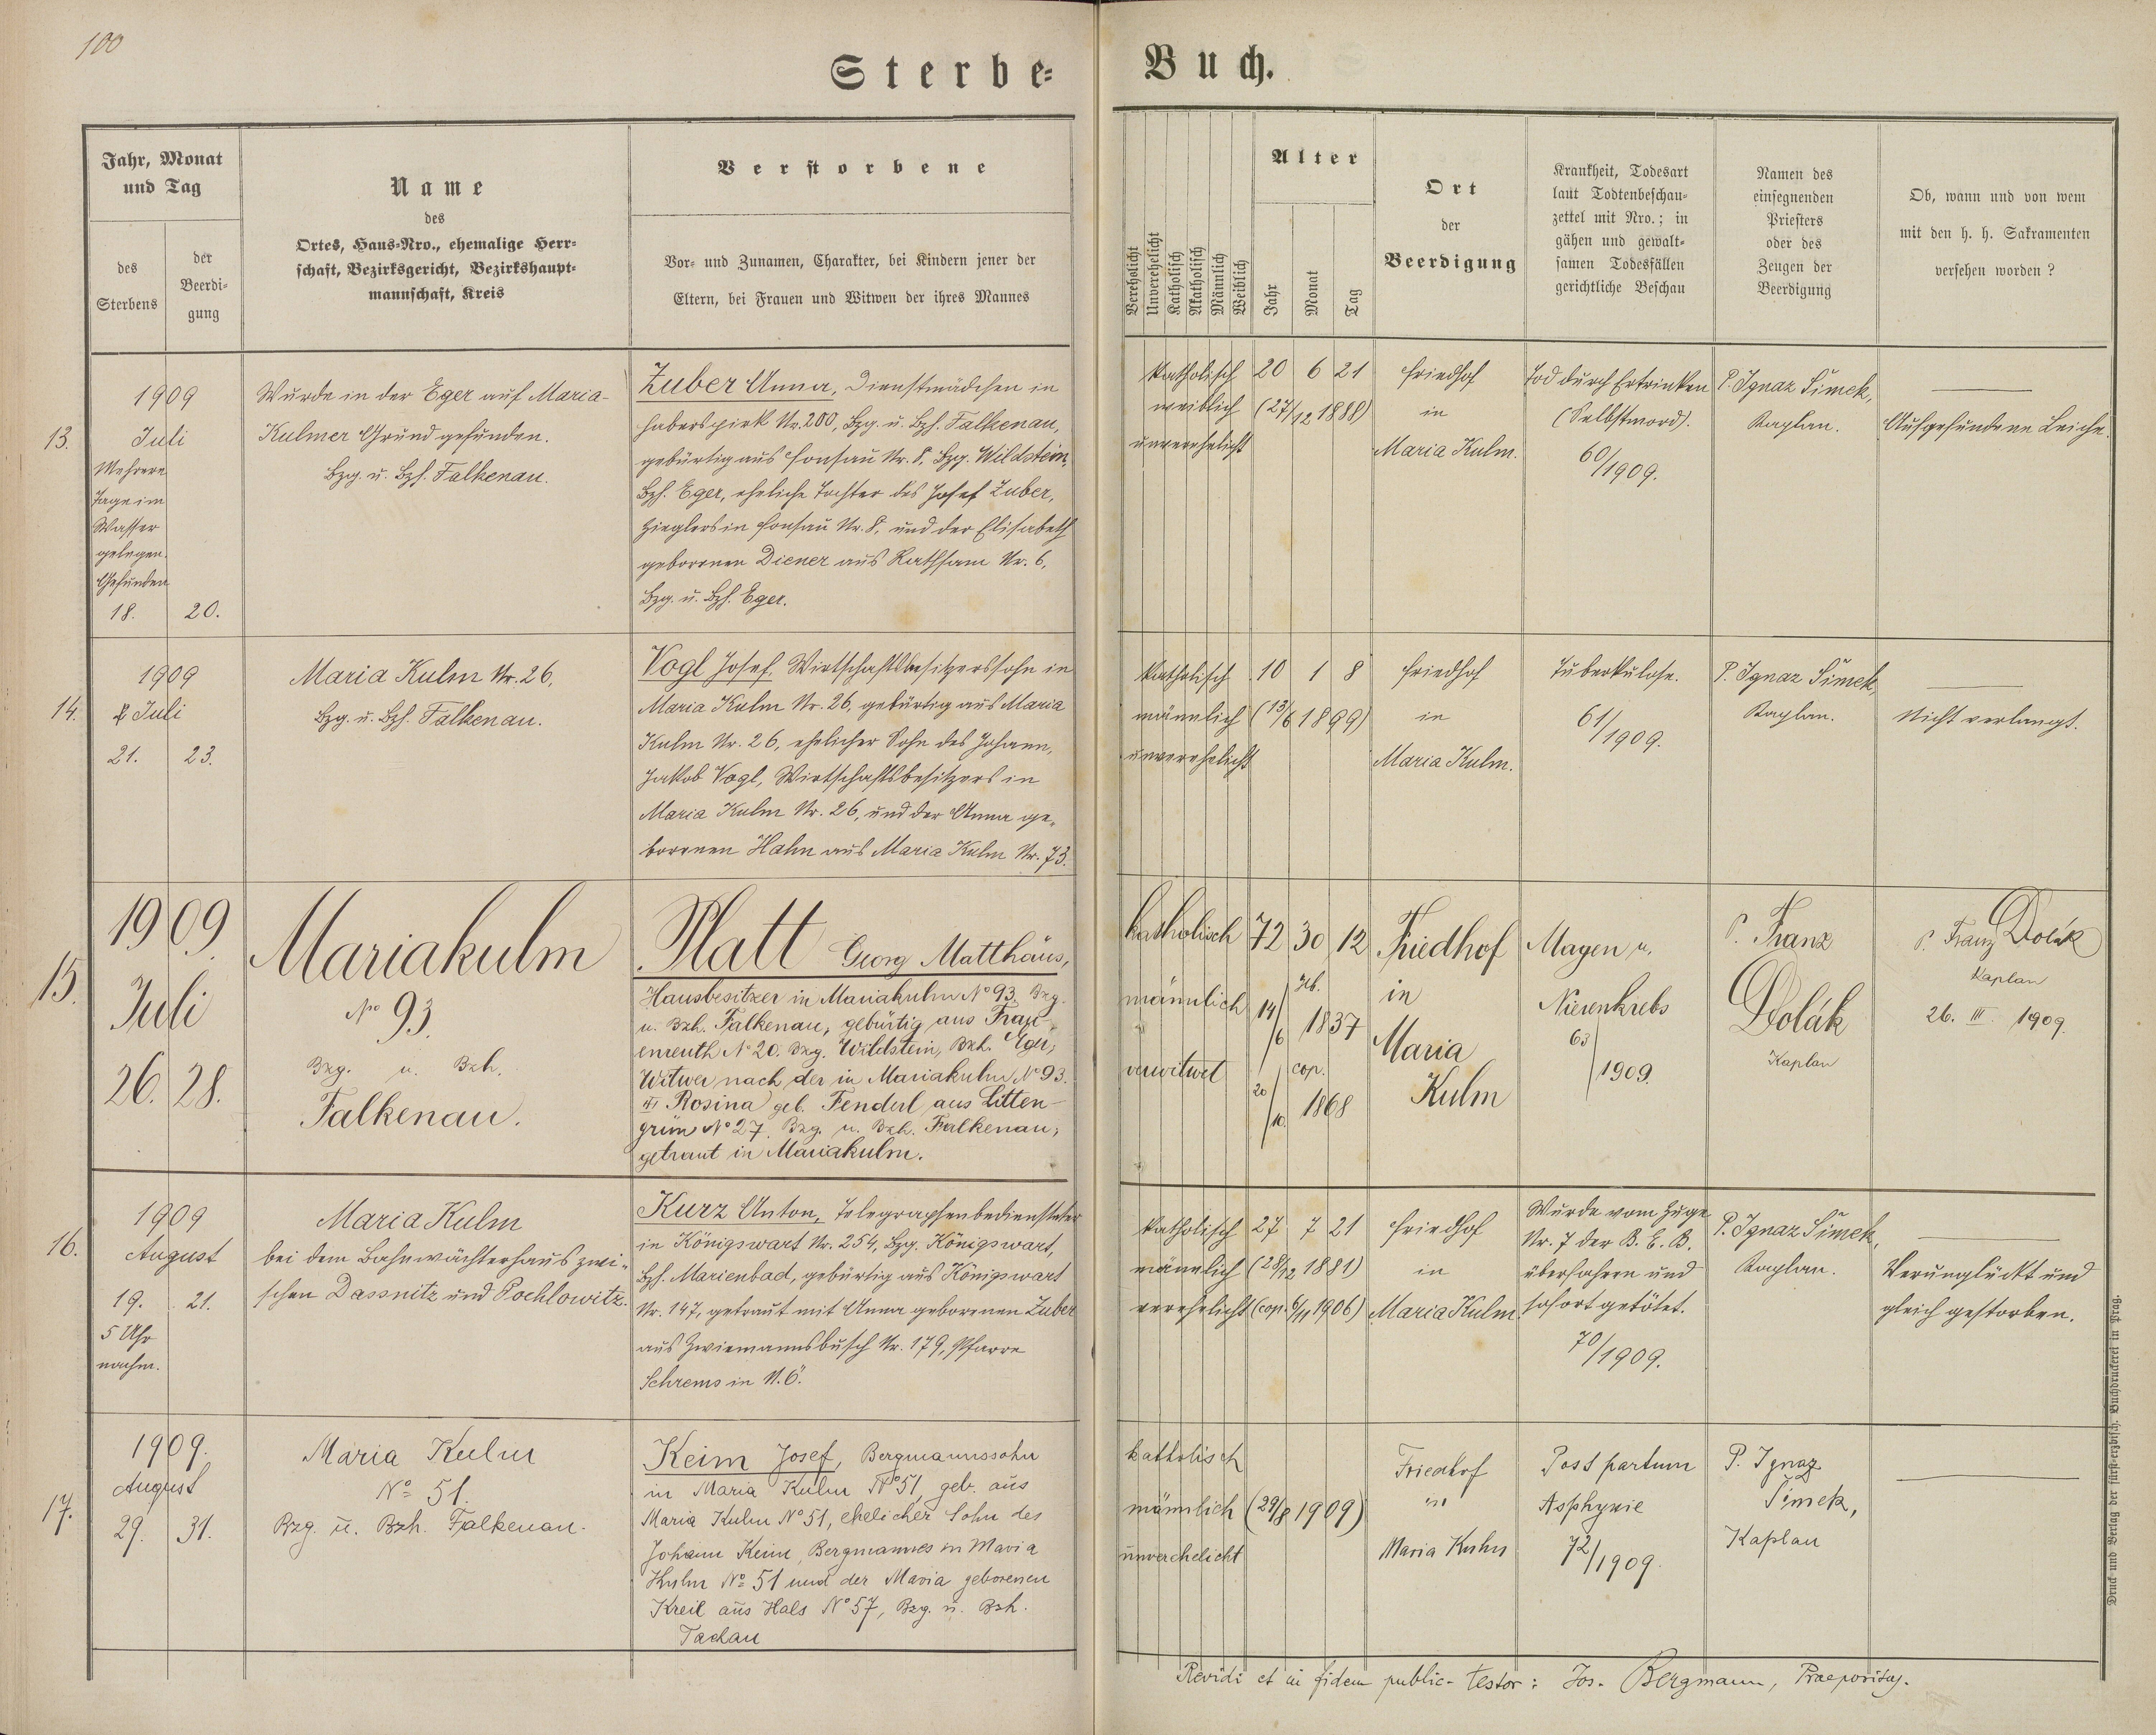 100
Sterbe=
Buch.
Jahr, Monat
und Tag
des
Sterbens
der
Beerdi-
gung
Name
des
Ortes, Haus-Nro., ehemalige Herr-
schaft, Bezirksgericht, Bezirkshaupt-
mannschaft, Kreis
Verstorbene
Vor- und Zunamen, Charakter, bei Kindern jener der
Eltern, bei Frauen und Witwen der ihres Mannes
Verehelicht
Unverehelicht
Katholisch
Akatholisch
Männlich
Weiblich
Alter
Jahr
Monat
Tag
Ort
der
Beerdigung
Krankheit, Todesart
laut Todtenbeschau-
zettel mit Nro.; in
gähen und gewalt-
samen Todesfällen
gerichtliche Beschau
Namen des
einsegnenden
Priesters
oder des
Zeugen der
Beerdigung
Ob, wann und von wem
mit den h. h. Sakramenten
versehen worden?
13.
1909
Juli
Mehrere
Tage im
Wasser
gelegen.
Gefunden
18. 20.
Wurde in der Eger auf Maria-
Kulmer Grund gefunden.
Bzg. u. Bzh. Falkenau.
Zuber Anna, Dienstmädchen in
Haberspirk Nr. 200, Bzg. u. Bzh. Falkenau,
gebürtig aus Fonsau Nr. 8, Bzg. Wildstein,
Bzh. Eger, eheliche Tochter des Josef Zuber,
Zieglers in Fonsau Nr. 8. und der Elisabeth
geborenen Diener aus Rathsam Nr. 6,
Bzg. u. Bzh. Eger.
katholisch 20 6 21
weiblich (27/12 1888)
unverehelicht
Friedhof
in
Maria Kulm.
Tod durch Ertrinken
(Selbstmord).
60/1909.
P. Ignaz Šimek,
Kaplan.
Aufgefundene Leiche.
14.
1909
Juli
21. 23.
Maria Kulm Nr. 26,
Bzg. u. Bzh. Falkenau.
Vogl Josef, Wirtschaftsbesitzerssohn in
Maria Kulm Nr. 26, gebürtig aus Maria
Kulm Nr. 26, ehelicher Sohn des Johann,
Jakob Vogl, Wirtschaftsbesitzers in
Maria Kulm Nr. 26, und der Anna ge-
borenen Hahn aus Maria Kulm Nr. 73.
katholisch 10 1 8
männlich (13/6 1899)
unverehelicht
Friedhof
in
Maria Kulm.
Tuberkulose.
61/1909.
P. Ignaz Šimek,
Kaplan.
Nicht verlangt.
15.
1909
Juli
26. 28.
Mariakulm
No 93.
Bzg. u. Bzh.
Falkenau.
Platt Georg Matthäus,
Hausbesitzer in Mariakulm No 93. Bzg.
u. Bzh. Falkenau, gebürtig aus Frau-
enreuth No 20. Bzg. Wildstein, Bzh. Eger;
Witwer nach der in Mariakulm No 93.
Rosina geb. Fenderl aus Litten-
grün No 27. Bzg. u. Bzh. Falkenau;
getraut in Mariakulm.
katholisch 72 30 12
männlich 14/6 1837
verwitwet cop.
20/10 1868
Friedhof
in
Maria
Kulm
Magen u.
Nierenkrebs
63/1909.
P. Franz
Dolák
Kaplan
P. Franz Dolák
Kaplan
26. III. 1909.
16.
1909
August
19. 21.
5 Uhr
nachm.
Maria Kulm
bei dem Bahnwächterhaus zwi-
schen Dassnitz und Pochlowitz.
Kurz Anton, Telegraphenbediensteter
in Königswart Nr. 254, Bzg. Königswart,
Bzh. Marienbad, gebürtig aus Königswart
Nr. 147, getraut mit Anna geborenen Zuber
aus Zwiemannsbusch Nr. 179, Pfarre
Schrems in N.Ö.
katholisch 27 7 21
männlich (28/12 1881)
verehelicht (cop. 6/11 1906)
Friedhof
in
Maria Kulm.
Wurde vom Zuge
Nr. 7 der B. E. B.
überfahren und
sofort getötet.
70/1909.
P. Ignaz Šimek,
Kaplan.
Verunglückt und
gleich gestorben.
17.
1909.
August
29. 31.
Maria Kulm
No 51.
Bzg. u. Bzh. Falkenau.
Keim Josef, Bergmannssohn
in Maria Kulm No 51, geb. aus
Maria Kulm No 51, ehelicher Sohn des
Johann Keim, Bergmannes in Maria
Kulm No 51 und der Maria geborenen
Kreil aus Hals No 57, Bzg. u. Bzh.
Tachau
katholisch
männlich (29/8 1909)
unverehelicht
Friedhof
in
Maria Kulm
Post partum
Asphyxie
72/1909.
P. Ignaz
Šimek,
Kaplan
Revidi et in fidem public. testor: Jos. Bergmann, Praepositus.
Druck und Verlag der fürst-erzbisch. Buchdruckerei in Prag.